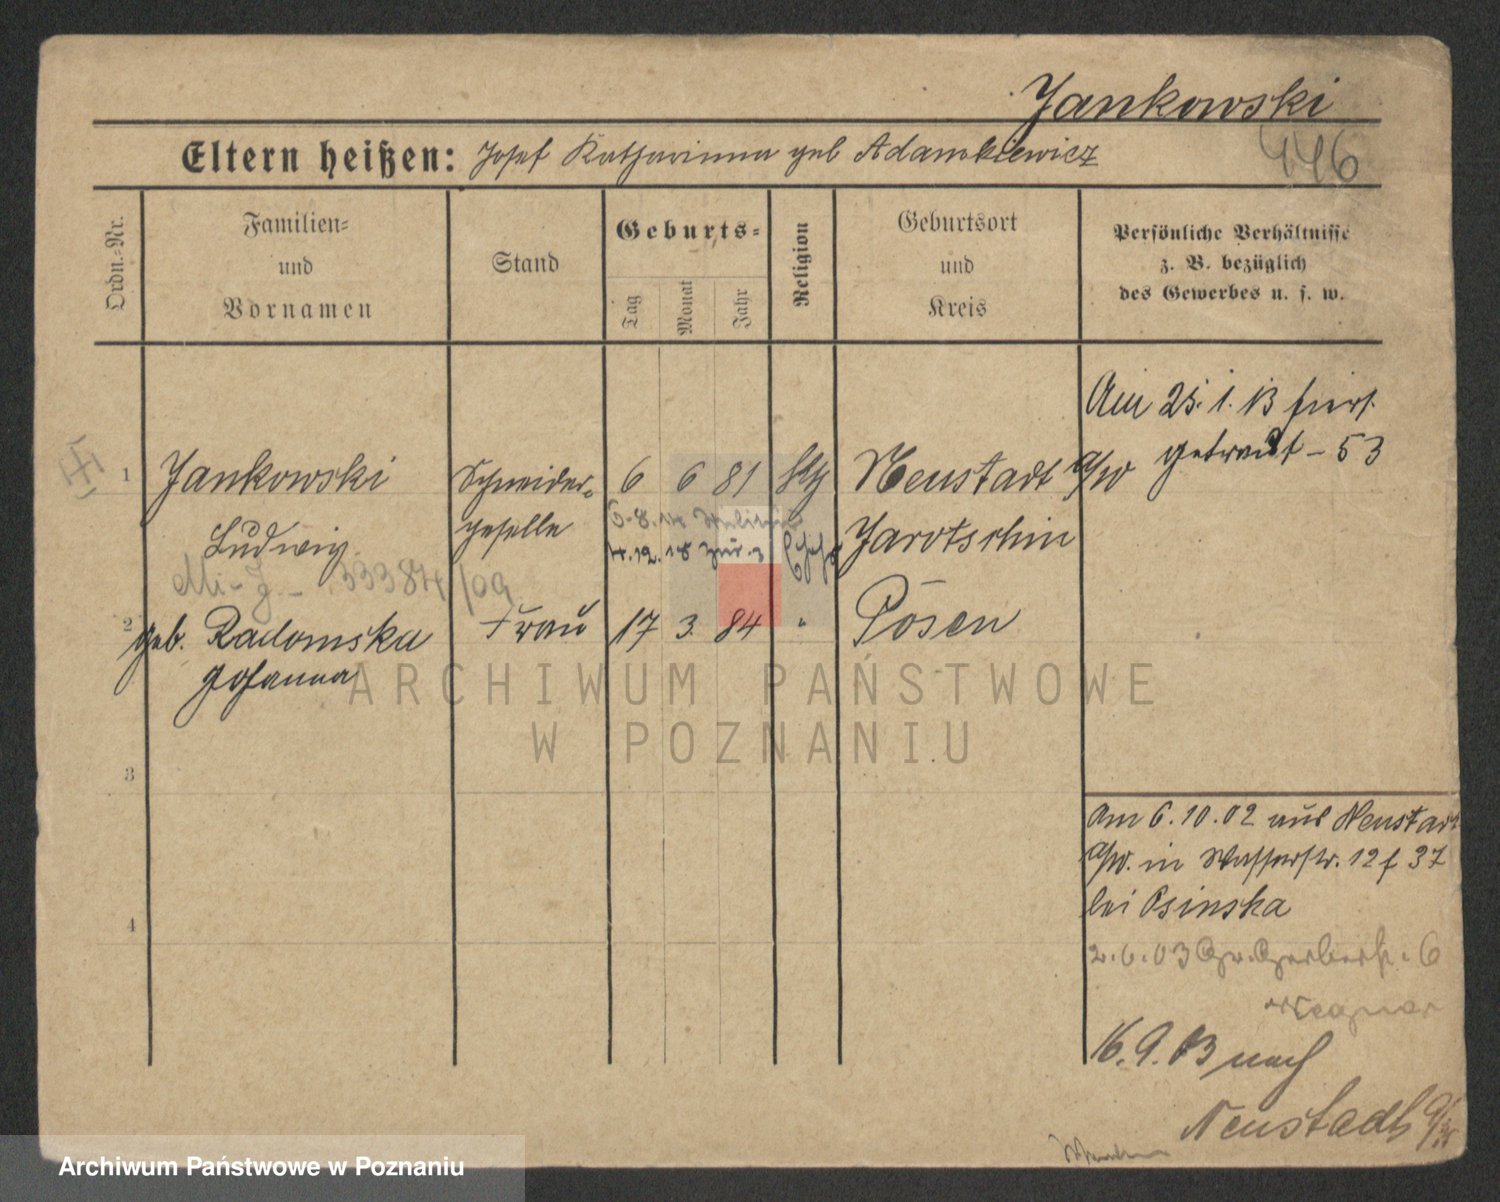 Jankowski
446
Eltern heißen: Josef Katharinna geb Adamkiewicz
Ordn.-Nr.
Familien- und Vornamen
Stand
Geburts-
Tag
Monat
Jahr
Religion
Geburtsort und Kreis
Persönliche Verhältnisse
z. B. bezüglich
des Gewerbes u. s. w.
Am 25.1.13 hiers.
getraut - 53
1 Jankowski Schneider- 6 6 81 Kth Neustadt a/W
Ludwig geselle Jarotschin
6.8.14
4.12.18 zur.
Mi-J - 33387/09
2 geb. Radomska Frau 17 3. 84 " Posen
Johanna
3
4
Am 6.10.02 aus Neustadt
a/W. in Wasserstr. 12 f 37
bei Psinska
2.6.03 Gr. Gerberstr. 6
Wegner
16.9.03 nach
Neustadt a/W
ARCHIWUM PAŃSTWOWE
W POZNANIU
Archiwum Państwowe w Poznaniu